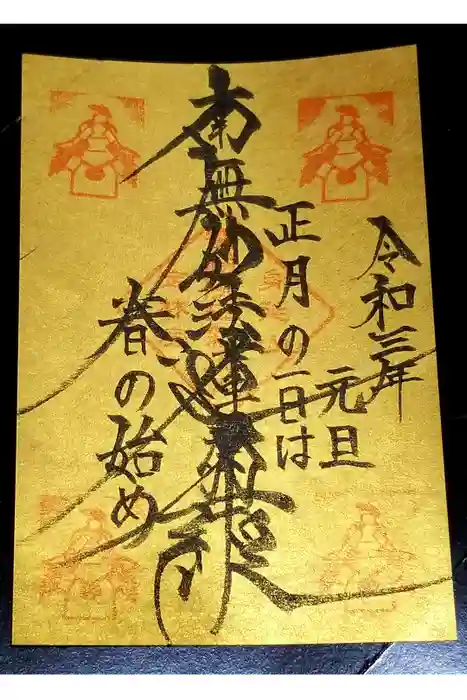 令和三年
元旦
正月の一日は
南無妙法蓮華経
春の始め